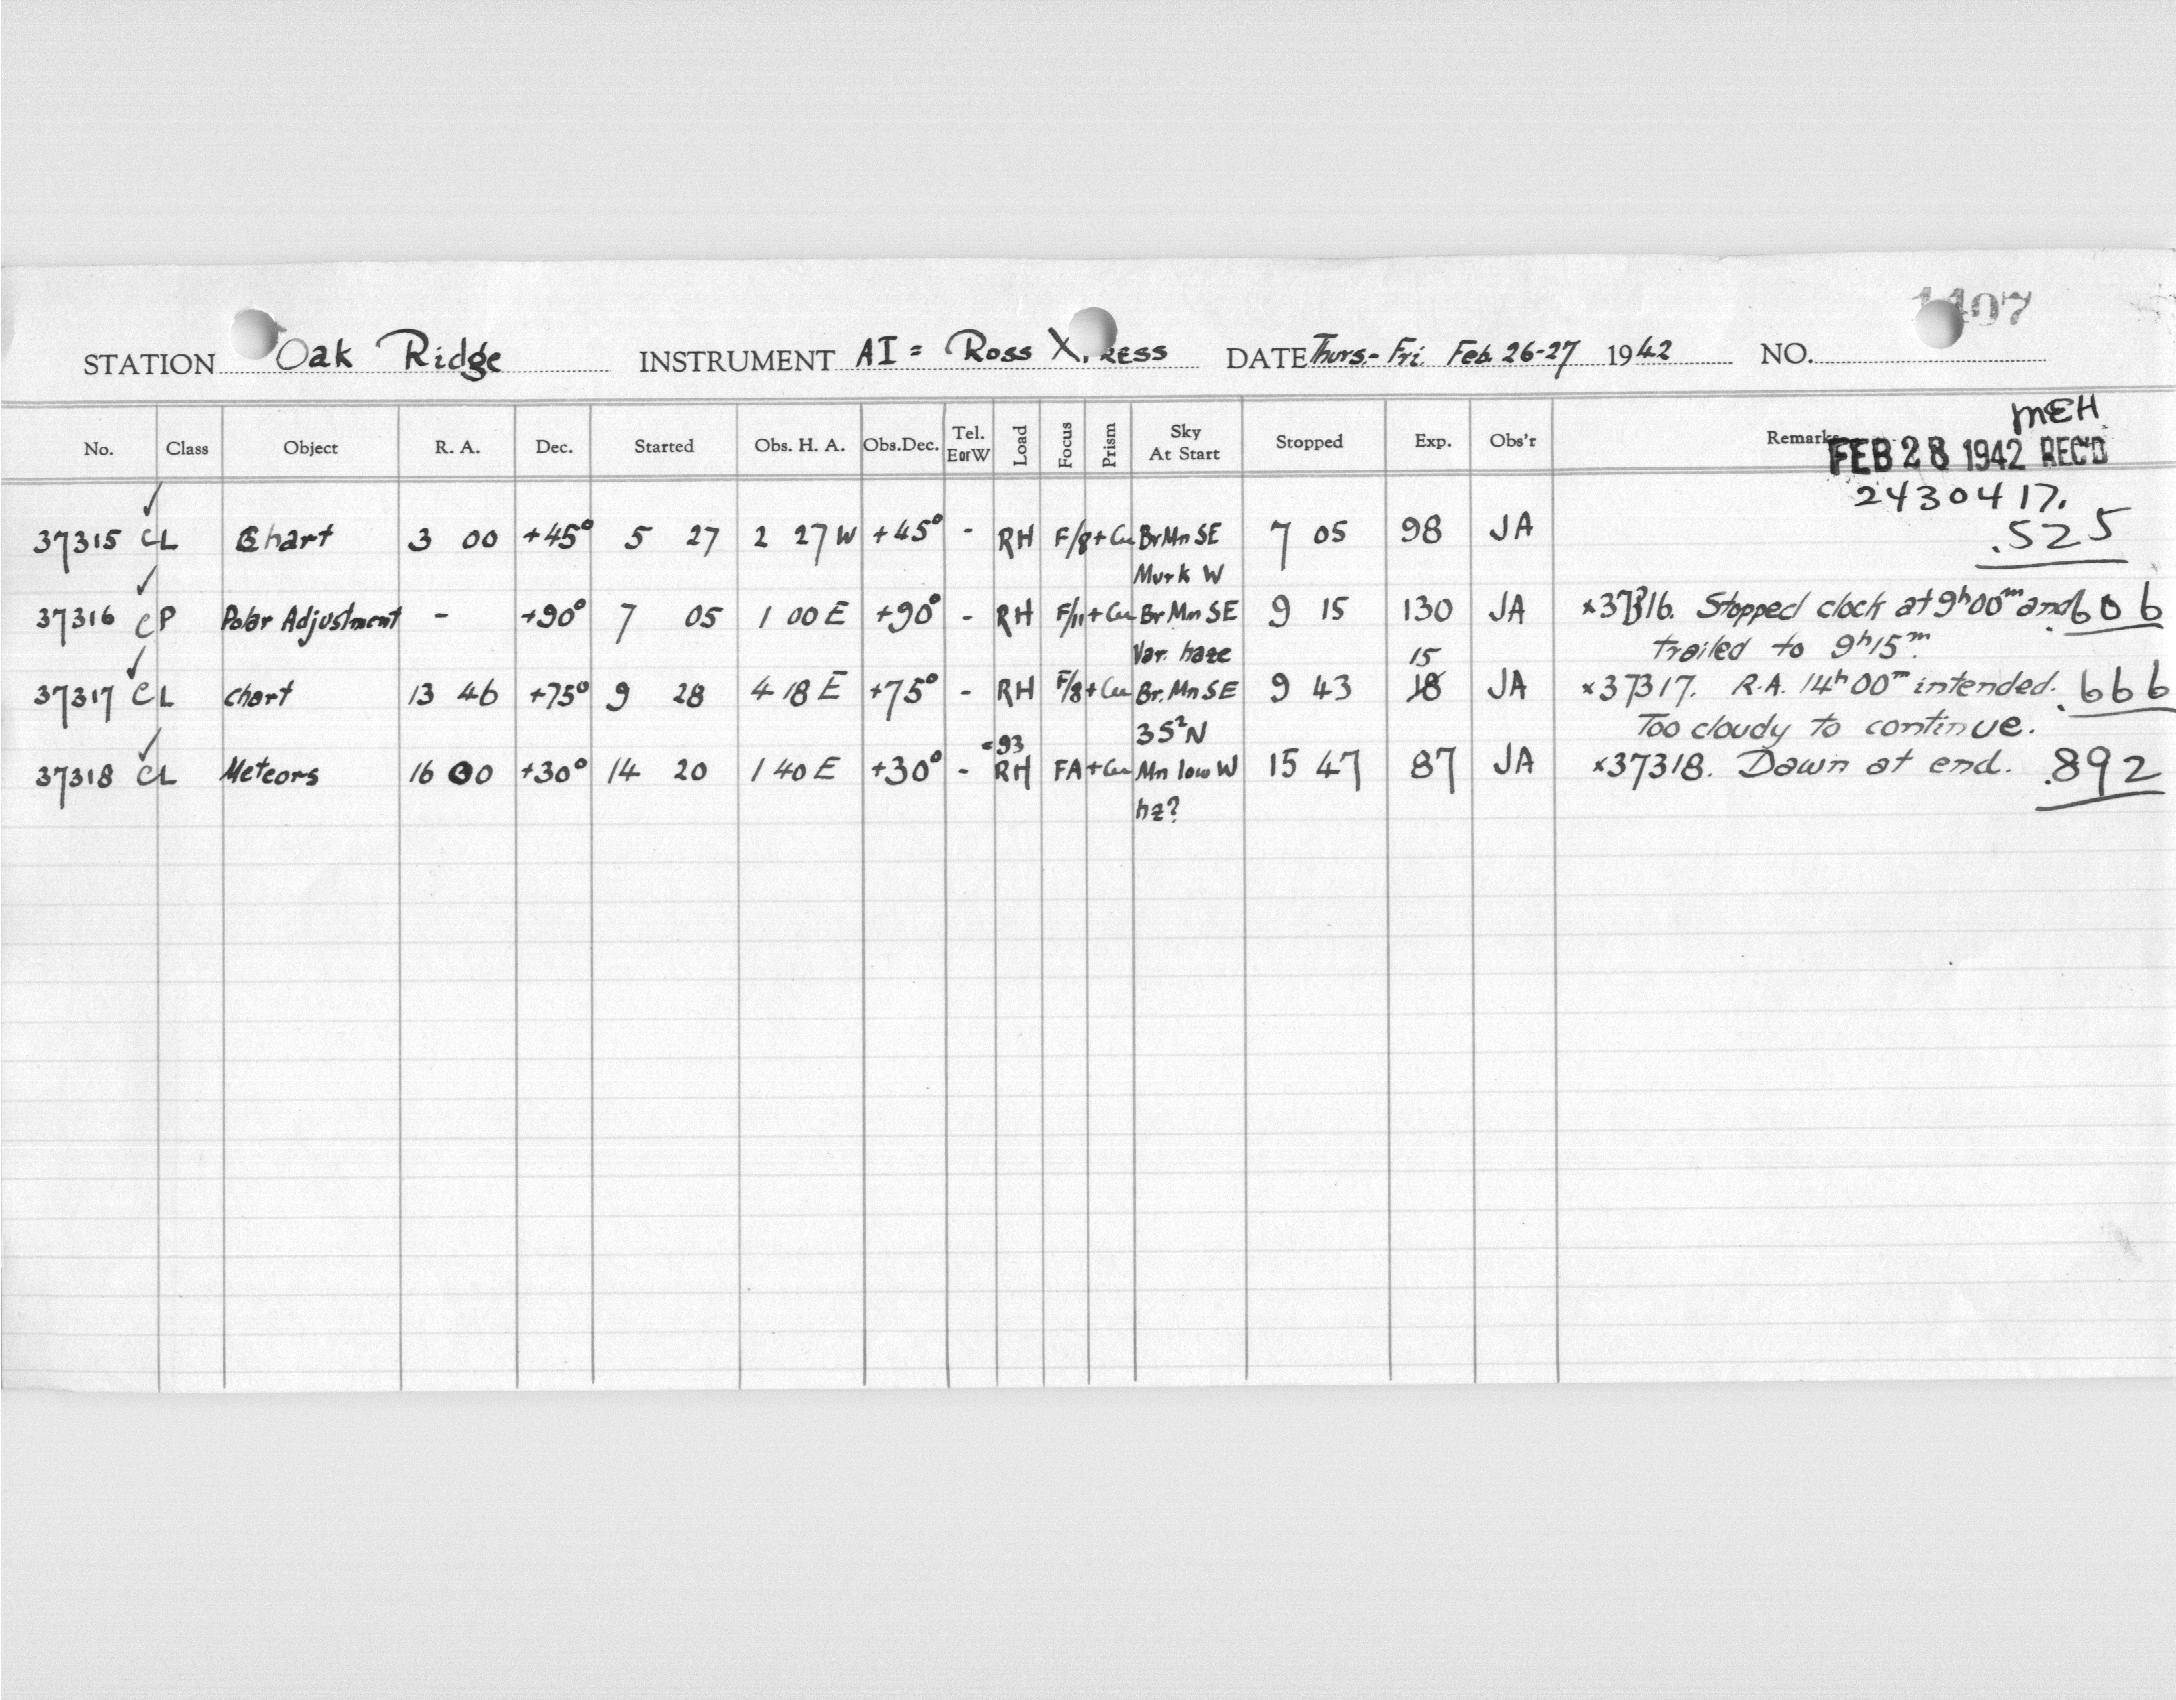 1407
STATION Oak Ridge INSTRUMENT AI = Ross X RESS DATE Thurs.- Fri. Feb. 26-27 1942 NO.
MEH
No. Class Object R. A. Dec. Started Obs. H. A. Obs.Dec. Tel. EorW Load Focus Prism Sky At Start Stopped Exp. Obs'r Remarks
FEB 28 1942 REC'D
2430417.
37315 CL Chart 3 00 +45° 5 27 2 27 W +45° - RH F/8 + Cu Br Mn SE 7 05 98 JA .525
Murk W
37316 CP Polar Adjustment - +90° 7 05 1 00 E +90° - RH F/11 + Cu Br Mn SE 9 15 130 JA x37316. Stopped clock at 9h00m and .606
Var. haze 15 trailed to 9h15m.
37317 CL Chart 13 46 +75° 9 28 4 18 E +75° - RH F/8 + Cu Br. Mn SE 9 43 18 JA x37317. R.A. 14h00m intended. .666
35²N Too cloudy to continue.
=93
37318 CL Meteors 16 00 +30° 14 20 1 40 E +30° - RH FA + Cu Mn low W 15 47 87 JA x37318. Dawn at end. .892
hz?